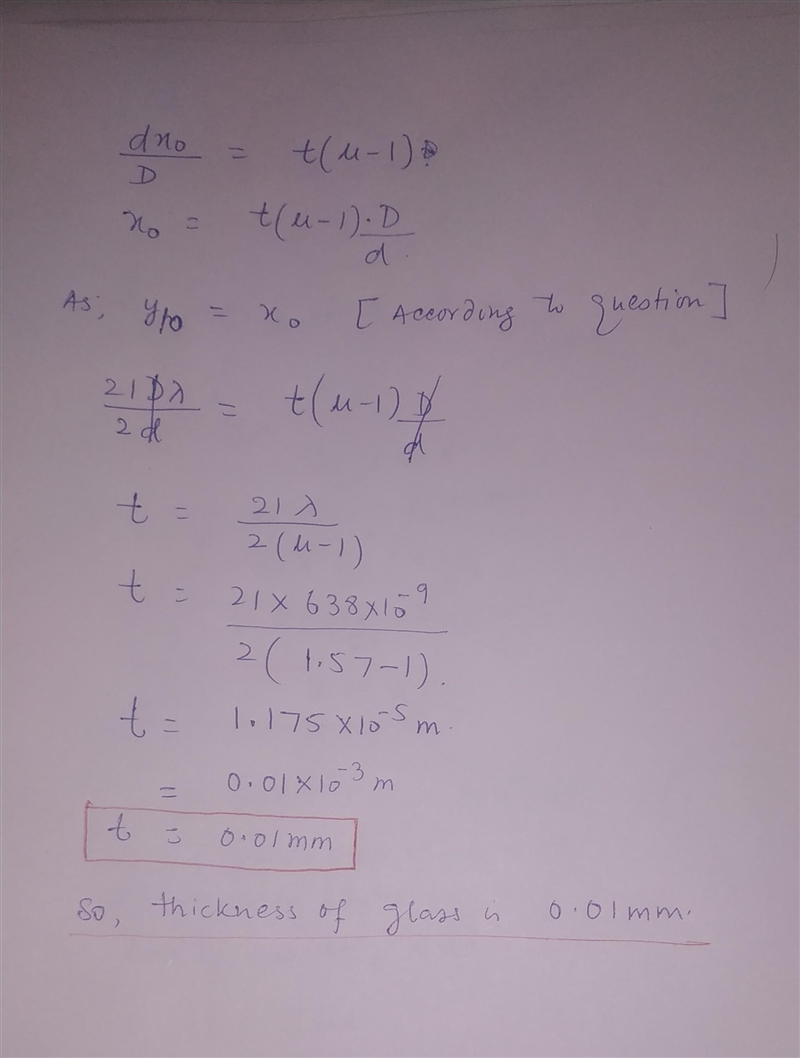 dx₀/D = t(μ-1)
x₀ = t(μ-1)·D/d.
As, y₁₀ = x₀ [According to question]
21Dλ/2d = t(μ-1) D/d
t = 21λ/2(μ-1)
t = 21×638×10⁻⁹/2(1.57-1).
t = 1.175×10⁻⁵ m.
= 0.01×10⁻³ m
t = 0.01mm
So, thickness of glass is 0.01mm.